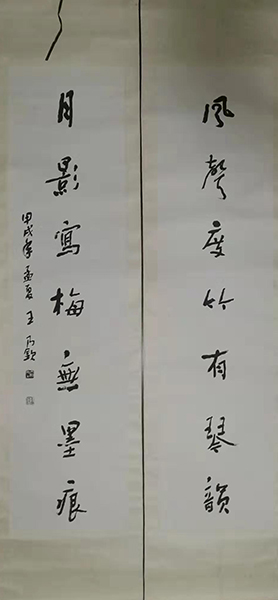 風聲度竹有琴韻
月影寫梅無墨痕
甲戌年孟夏王乃欽